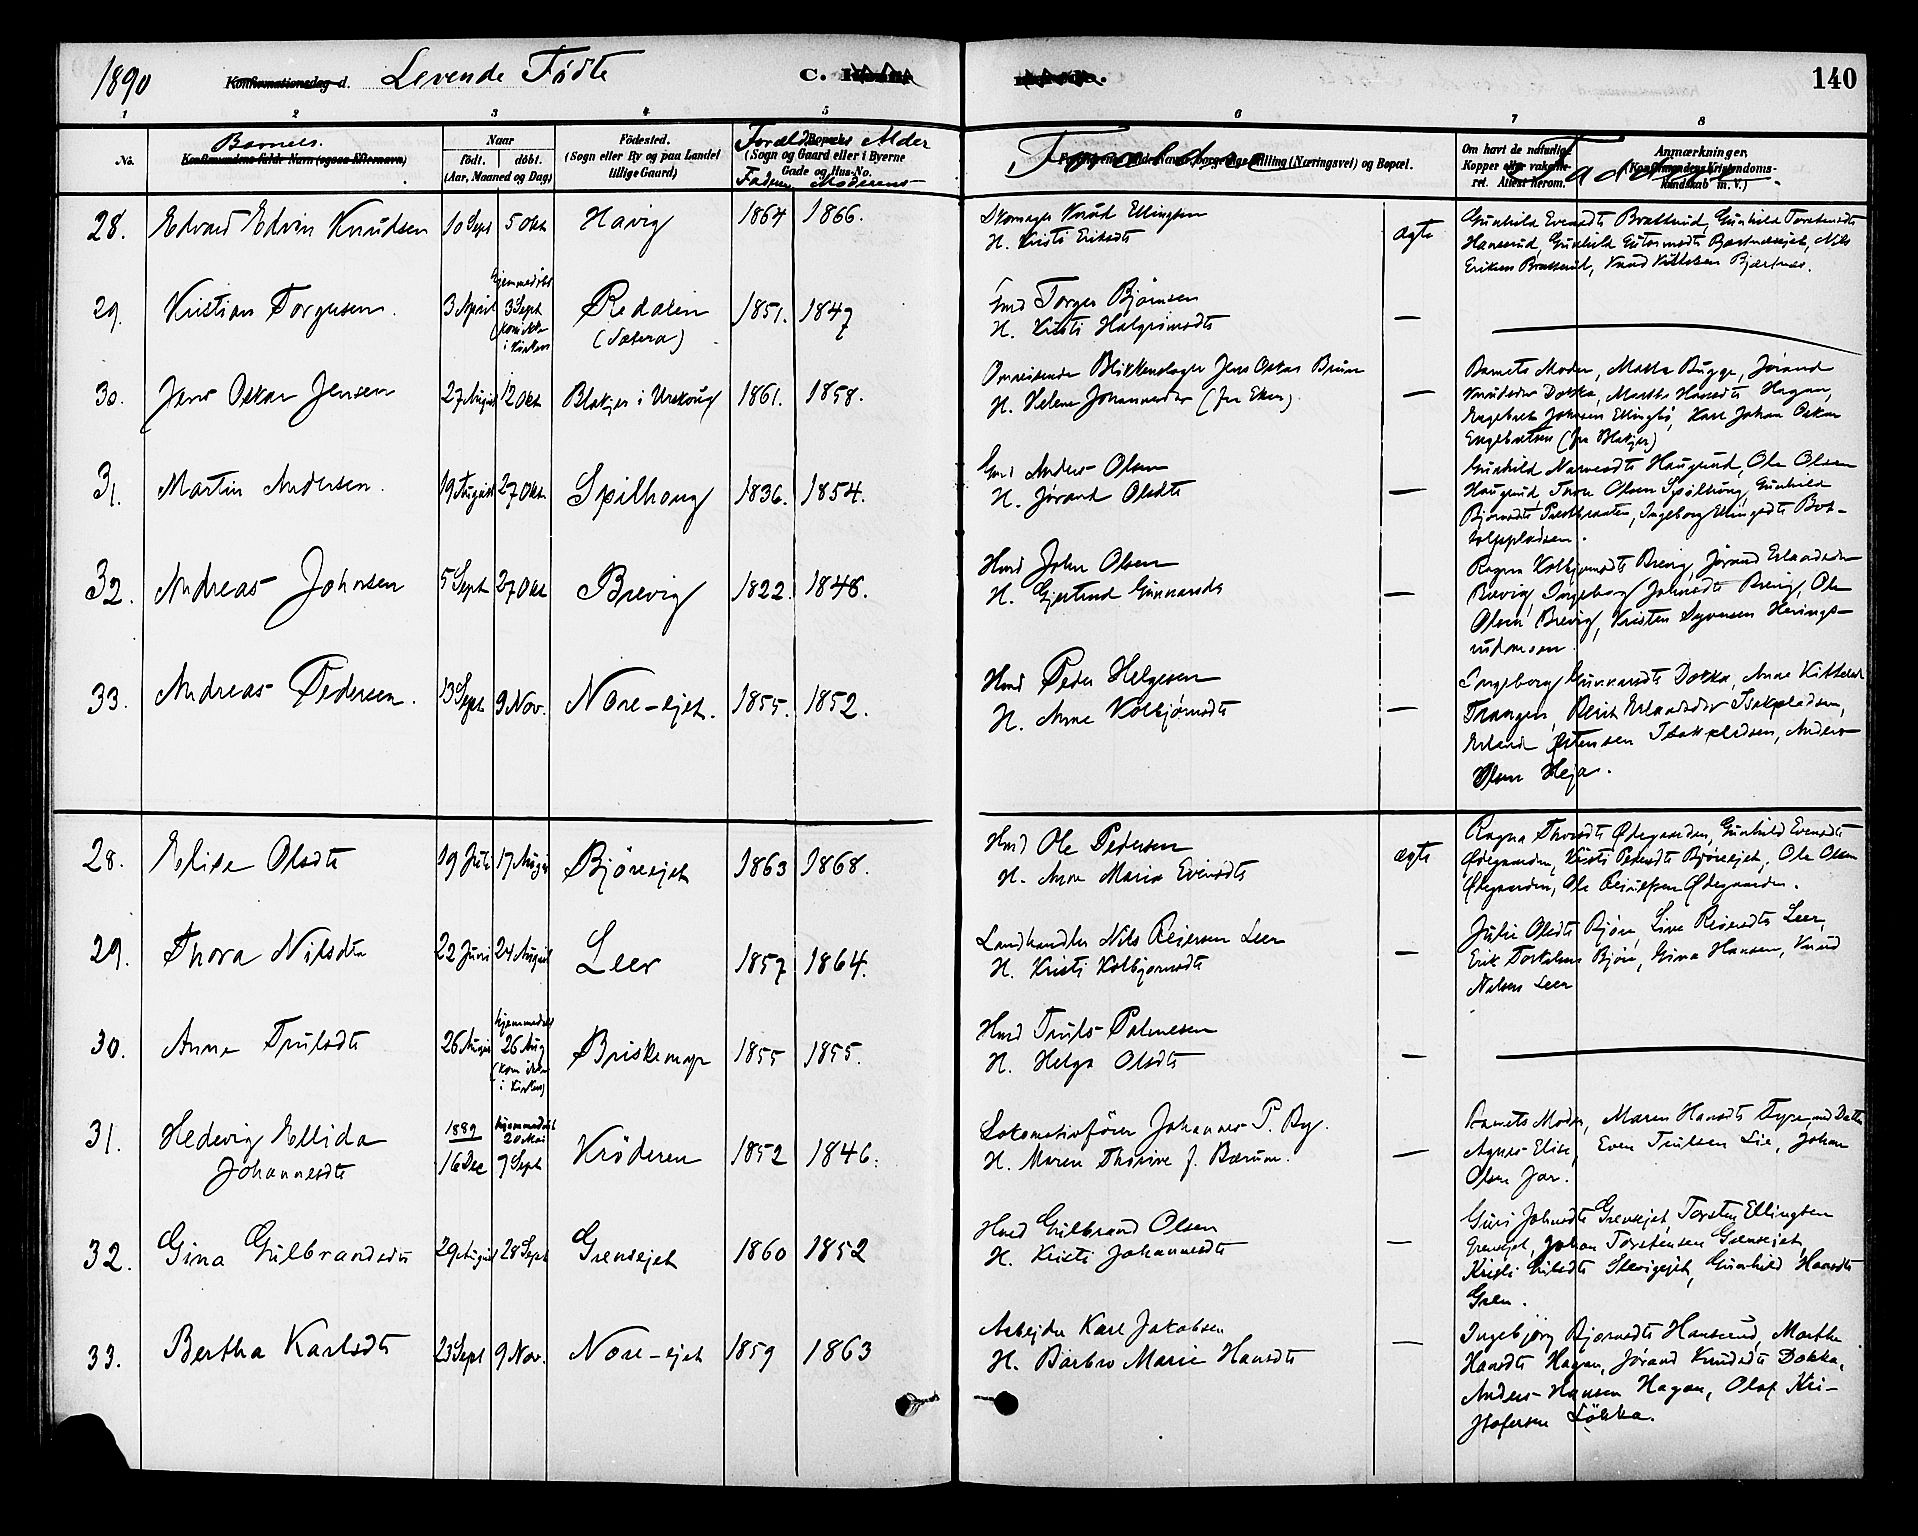 1890 Konfirmationsdag d. Levende Fødte C. 140
1 2 3 4 5 6 7 8
No. Barnets Konfirmandens fulde Navn (ogsaa Efternavn)
Naar født. døbt. (Aar, Maaned og Dag)
Fødested. (Sogn eller By og paa Landet tillige Gaard)
Forældrenes Alder Bopæls (Sogn og Gaard eller i Byerne Gade og Hus-No.
Faderens Moderens
Forældre Stilling (Næringsvei) og Bopæl.
Om havt de naturlige Kopper eller vakcineret. Attest herom.
Faddere
Anmærkninger. (Konfirmandens Kristendomskundskab m. V.)
28. Edvard Edvin Knudsen 10 Sept 5 Okt Havig 1864 1866.
Skomager Knud Ellingsen
H. Kristi Eriksdt ægte
Gunhild Evensdt Bratterud, Gunhild Torstensdt
Hanserud, Gunhild Guttormsdt Nils
Eriksen Bratterud, Knud Kittelsen Bjærtnes.
29. Kristian Torgersen. 3 April Hjemmedøbt 3 Sept (kom ikke i Kirken) Redalen (Sætera) 1851. 1847
Gmd Torger Bjørnsen
H. Kristi Halgrimsdt —
30. Jens Oskar Jensen 27 August 12 Okt Blakjer i Urskoug 1861. 1858.
Omreisende Blikkenslager Jens Oskar Bruun
H. Helene Johannesdtr (fra Eker). —
Barnets Moder, Marta Bugge, Jørand
Knudsdtr Dokka, Marthe Hansdt Hagan,
Engebret Johnsen Ellingbø, Karl Johan Oskar
Engebretsen (fra Blakjer)
31. Martin Andersen. 19 August 27 Okt Spilhoug 1836. 1854.
Gmd Anders Olsen
H. Jørand Olsdt —
Gunhild Narvesdt Haugerud, Ole Olsen
Haugerud, Tron Olsen Spilhoug, Gunhild
Bjørnsdt Præstbraaten, Ingeborg Ellingsdt Bot-
tolfspladsen.
32. Andreas Johnsen 5 Sept 27 Okt Brevig 1822 1848.
Hmd John Olsen
H. Gjertrud Gunnarsdt —
Ragna Kolbjørnsdt Brevig, Jørand Erlandsdtr
Brevig, Ingeborg Johnsdt Brevig, Ole
Olsen Brevig, Kristen Syversen Herings-
rudmoen.
33. Andreas Pedersen. 13 Sept 9 Nov. Nore-ejet. 1855. 1852.
Hmd Peder Helgesen
H. Anne Kolbjørnsdt —
Ingeborg Gunnarsdt Dokka, Anne Kittelsdt
Trangen, Berit Erlandsdtr Isakpladsen,
Erland Østensen Isakpladsen, Anders
Olsen Heja.
28. Elise Olsdt 19 Juli 17 August Bjøreejet 1863 1868.
Hmd Ole Pedersen
H. Anne Maria Evensdt ægte
Ragna Thorsdt Ødegaarden, Gunhild Evensdt
Ødegaarden, Kristi Pedersdt Bjøreejet, Ole Olsen
Ødegaarden, Ole Ødegaarden.
29. Thora Nilsdt 22 Juni 24 August Leer 1857 1864.
Landhandler Nils Reiersen Leer
H. Kristi Kolbjørnsdt —
Julie Olsdt Bjøre, Live Reiersdt Leer,
Erik Torkelsen Bjøre, Gina Hansen, Knud
Nilsen Leer
30. Anne Trulsdt 26 August Hjemmedøbt 26 Aug (kom ikke i Kirken) Briskemyr 1855 1855.
Hmd Truls Palmesen
H. Helga Olsdt —
31. Hedevig Ellida Johannesdt 1889 16 Dec Hjemmedøbt 20 Mai 7 Sept Krøderen 1852 1846.
Lokomotivfører Johannes P. By.
H. Maren Thorine f. Bærum. —
Barnets Moder, Maren Hansdt
Agnes Elise, Even Trulsen Lie, Johan
Olsen Jar.
32. Gina Gulbrandsdt 29 August 28 Sept Grensejet 1860 1852
Hmd Gulbrand Olsen
H. Kristi Johannesdt —
Guri Johnsdt Grensejet, Torsten Ellingsen
Grensejet, Johan Torstensen Grensejet,
Kristi Gunhild Hansdt
Gren.
33. Bertha Karlsdt 23 Sept 9 Nov. Nore-ejet 1859 1863
Arbejder Karl Jakobsen
H. Barbro Marie Hansdt —
Ingebjørg Bjørnsdt Hanserud, Marthe
Hansdt Hagan, Jørand Knudsdt Dokka,
Anders Hansen Hagan, Olof Kri-
stofersen Løkka.